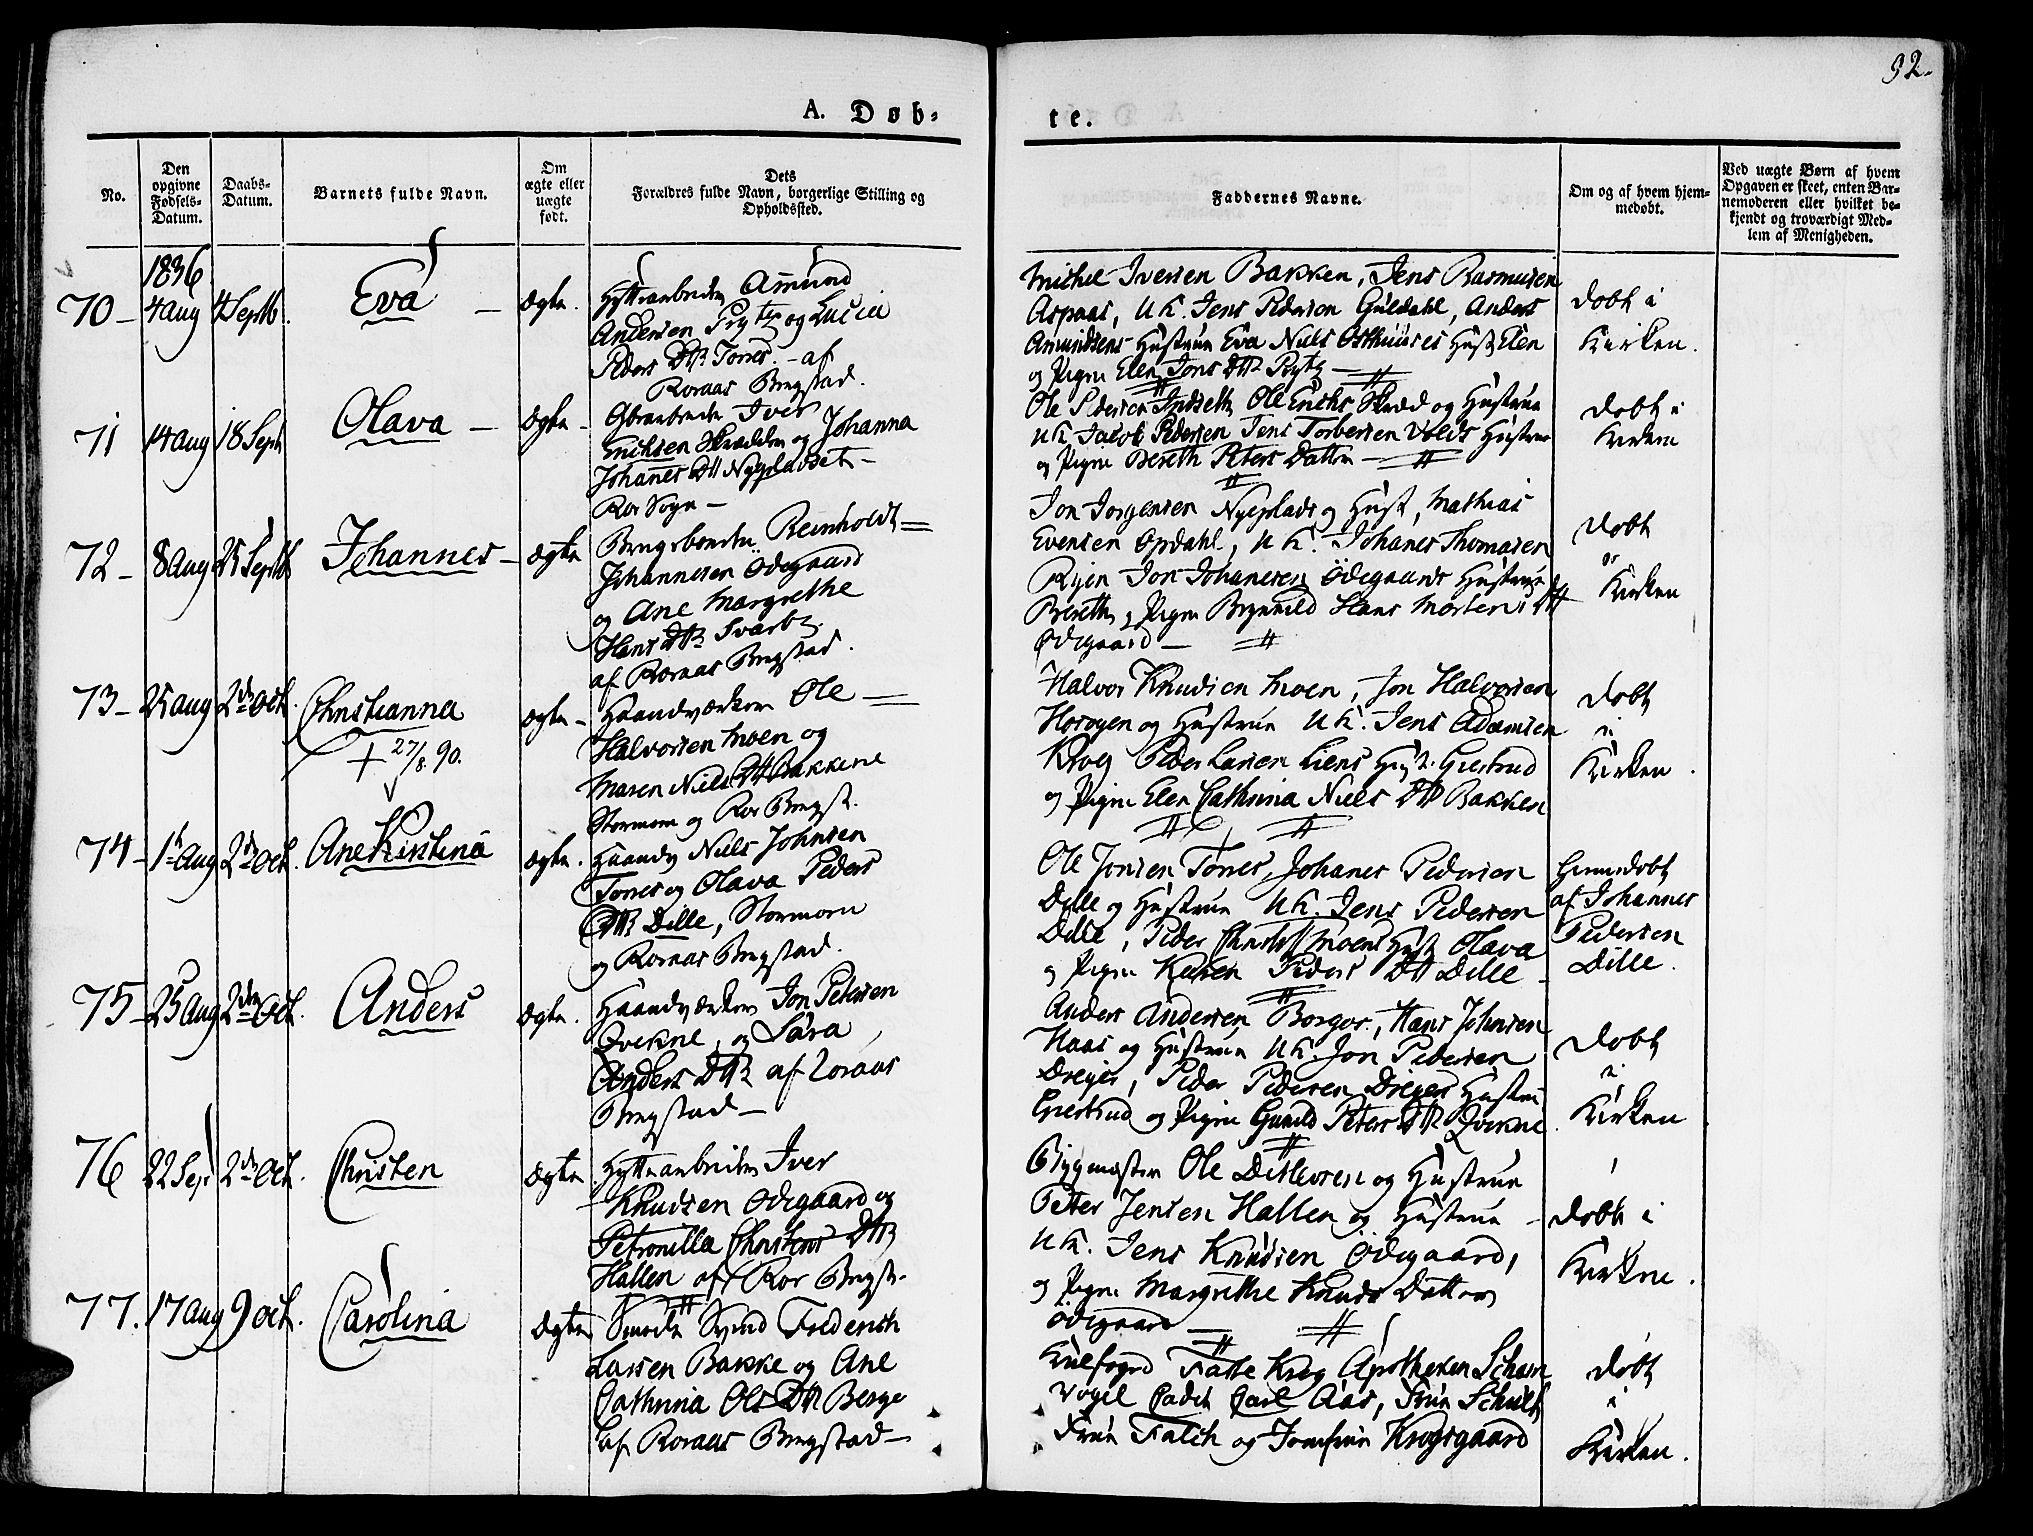 92.
A. Døb-
te.
No.
Den opgivne Fødsels-Datum.
Daabs-Datum.
Barnets fulde Navn.
Om ægte eller uægte født.
Dets
Forældres fulde Navn, borgerlige Stilling og
Opholdssted.
Faddernes Navne.
Om og af hvem hjem-
medøbt.
Ved uægte Børn af hvem
Opgaven er skeet, enten Bar-
nemoderen eller hvilket be-
kjendt og troværdigt Med-
lem af Menigheden.
1836
70 - 4 Aug 4 Septb. Eva - Ægte. Hyttearbeider Amund
Andersen Prytz og Lucia
Peders Dtr Tornes. - af
Roraas Bergstad.
Michel Iversen Bakken, Jens Rasmusen
Aspaas, UK. Jens Pedersen Guldahl, Anders
Amundsens Hustrue Eva Niels Osthuuses Hust Elen
og Pigen Elen Jons Dtr Prytz -
Døbt i
Kirken.
71 14 Aug 18 Sept Olava - Ægte - Iver
Erichsen Skrædder og Johanna
Johannes Dtr Nypladset -
Ror Sogn -
Ole Pedersen Indsett, Ole Erichs Skræd og Hustrue
UK Jacob Pedersen Jens Torbersen Volds Hustrue
og Pigen Bereth Peters Datter -
Døbt i
Kirken
72 - 8 Aug 25 Septb Johannes - Ægte Bergsbonden Reinholdt
Johannesen Ødegaard
og Ane Margrethe
Hans Dtr Svartz
af Roraas Bergstad.
Jon Jorgensen Nyeplads og Hust, Mathias
Evensen Opdahl, UK. Johanes Thomasen
Ryen Jon Johanesen Ødegaards Hustrue
Bereth og Pigen Brynnild Hans Mortens Dtr
Ødegaard -
Døbt
i
Kirken
73 - 25 Aug 2den Oct. Christianna Ægte - Haandværker Ole -
+ 27/8. 90.
Halvorsen Moen og
Maren Niels Dtr Bakkene
Stormoen og Ror Bergst.
Halvor Knudsen Moen, Jon Halvorsen
Horoyen og Hustrue UK. Jens Adamsen
Krog Peder Larsen Liens Hust. Giertrud
og Pigen Elen Cathrina Niels Dtr Bakken
Døbt
i
Kirken.
74 - 1st Aug 2den Oct. Ane Kirstina Ægte. Haandv Niels Johnsen
Tornes og Olava Peders
Dtr Dille, Stormoen
og Roraas Bergstad.
Ole Jonsen Tornes, Johanes Pedersen
Dille og Hustrue UK. Jens Pedersen
Dille, Peder Christ Moens Hust Olava
og Pigen Karen Peders Dtr Dille -
Hjemedøbt
af Johannes
Pedersen
Dille.
75 - 25 Aug 2den Oct. Anders Ægte. Haandværker Jon Petersen
Qvekne, og Sara
Anders Dtr af Roraas
Bergstad -
Anders Andersen Borgos, Hans Johnsen
Haas og Hustrue UK. Jon Pedersen
Dreyer, Peder Pedersen Dreyers Hustru
Giertrud og Pigen Gunild Peters Dtr Qvekne.
Døbt
i
Kirken
76 22 Sep 2den Oct. Christen Ægte Hyttearbeider Iver
Knudsen Ødegaard og
Petronilla Christens Dtr
Hallen af Ror Bergst.
Bygmester Ole Ditlevsen og Hustrue
Petter Jensen Hallen og Hustrue -
UK. Jens Knudsen Ødegaard,
og Pigen Margrethe Knuds Datter
Ødegaard -
Døbt i
Kirken.
77. 17 Aug 9 Oct. Carolina Ægte Smede Svend Frederich
Larsen Bakke og Ane
Cathrina Ols Dtr Berge
af Roraas Bergstad -
Kulfogd Falle Krog Apotheker Scham
Vogel Cadet Carl Aas, Frue Schult
Frue Falch og Jomfrue Krogsgaard
Døbt
i
Kirken.